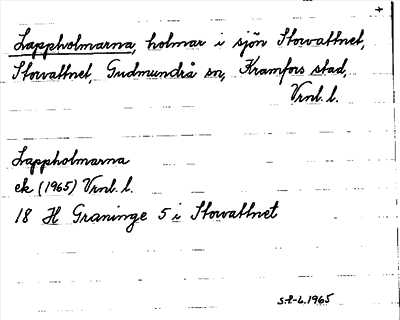 +
Lappholmarna, holmar i sjön Storvattnet,
Storvattnet, Gudmundrå sn, Kramfors stad,
Vrnl. l.
Lappholmarna
ek (1965) Vrnl. l.
18 H Graninge 5 i Storvattnet
1965